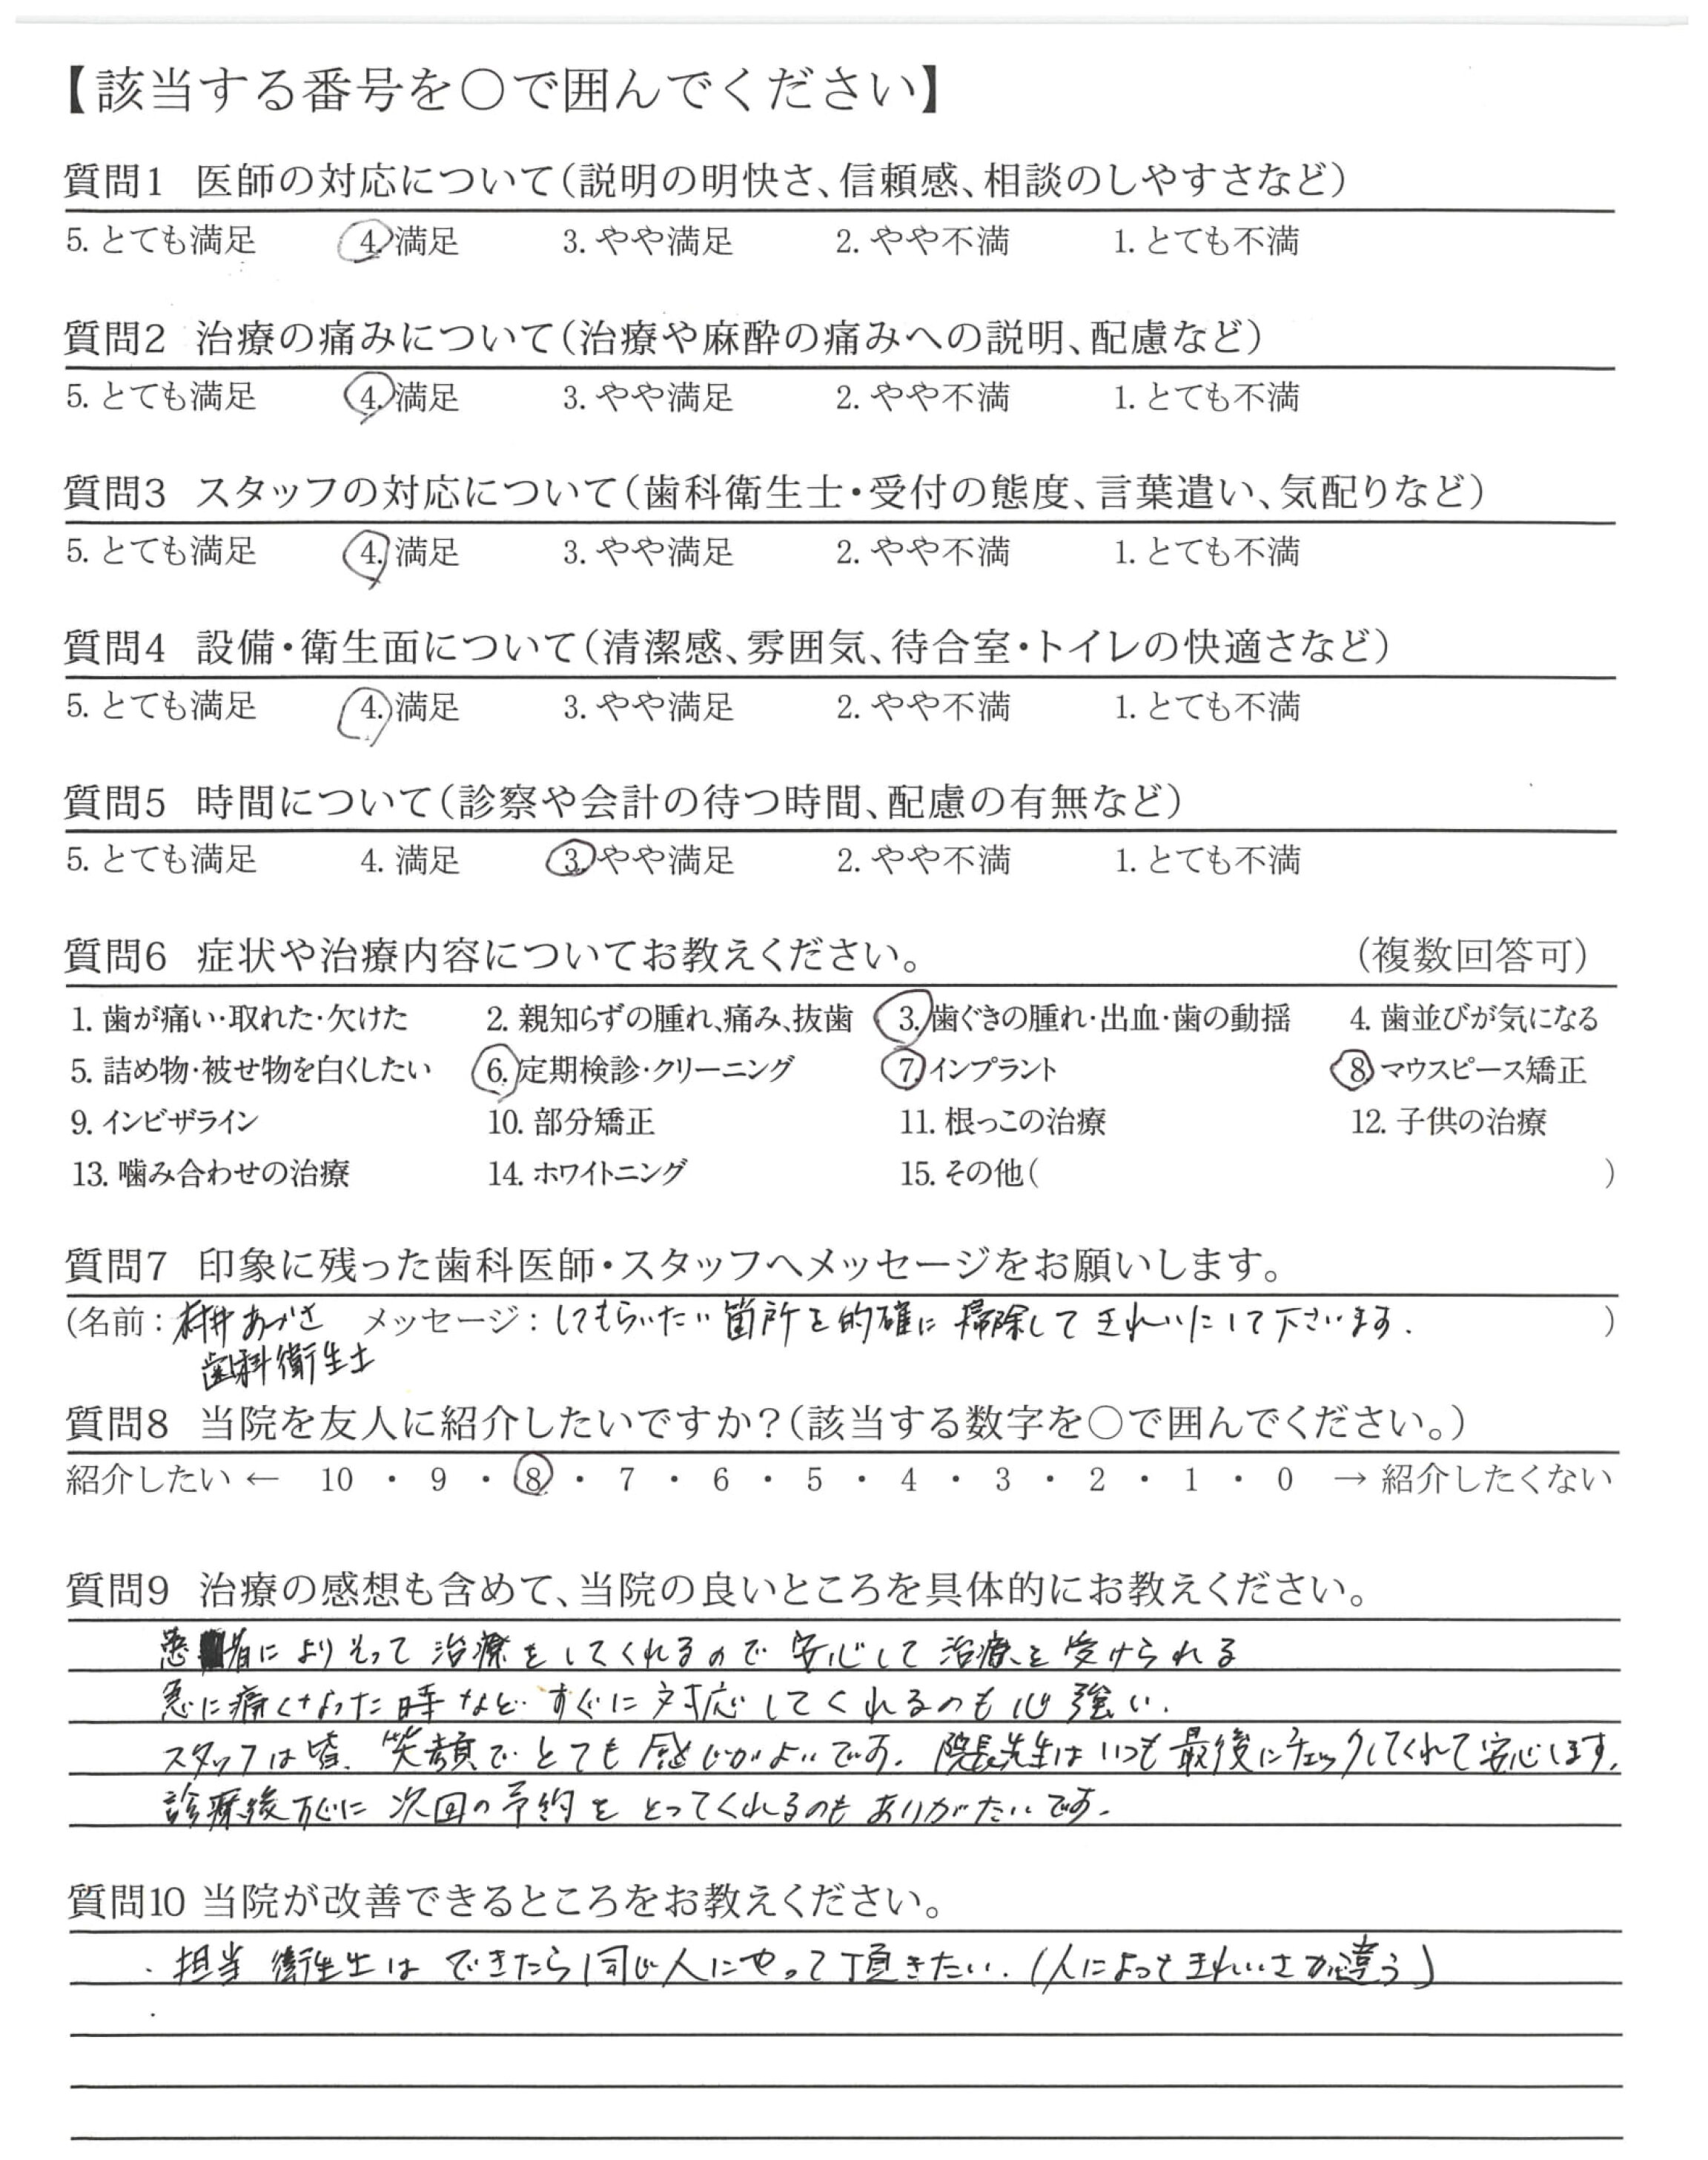 【該当する番号を○で囲んでください】
質問1 医師の対応について(説明の明快さ、信頼感、相談のしやすさなど)
5. とても満足 4. 満足 3. やや満足 2. やや不満 1. とても不満
質問2 治療の痛みについて(治療や麻酔の痛みへの説明、配慮など)
5. とても満足 4. 満足 3. やや満足 2. やや不満 1. とても不満
質問3 スタッフの対応について(歯科衛生士・受付の態度、言葉遣い、気配りなど)
5. とても満足 4. 満足 3. やや満足 2. やや不満 1. とても不満
質問4 設備・衛生面について(清潔感、雰囲気、待合室・トイレの快適さなど)
5. とても満足 4. 満足 3. やや満足 2. やや不満 1. とても不満
質問5 時間について(診察や会計の待つ時間、配慮の有無など)
5. とても満足 4. 満足 3. やや満足 2. やや不満 1. とても不満
質問6 症状や治療内容についてお教えください。 (複数回答可)
1. 歯が痛い・取れた・欠けた 2. 親知らずの腫れ、痛み、抜歯 3. 歯ぐきの腫れ・出血・歯の動揺 4. 歯並びが気になる
5. 詰め物・被せ物を白くしたい 6. 定期検診・クリーニング 7. インプラント 8. マウスピース矯正
9. インビザライン 10. 部分矯正 11. 根っこの治療 12. 子供の治療
13. 噛み合わせの治療 14. ホワイトニング 15. その他( )
質問7 印象に残った歯科医師・スタッフへメッセージをお願いします。
(名前: メッセージ: してもらいたい箇所を的確に掃除してきれいにして下さいます. )
歯科衛生士
質問8 当院を友人に紹介したいですか?(該当する数字を○で囲んでください。)
紹介したい ← 10 ・ 9 ・ 8 ・ 7 ・ 6 ・ 5 ・ 4 ・ 3 ・ 2 ・ 1 ・ 0 → 紹介したくない
質問9 治療の感想も含めて、当院の良いところを具体的にお教えください。
患者によりそって治療をしてくれるので安心して治療を受けられる
急に痛くなった時など すぐに対応してくれるのも心強い.
スタッフは皆、笑顔でとても感じがよいです. 院長先生はいつも最後にチェックしてくれて安心します.
診療後すぐに次回の予約をとってくれるのもありがたいです.
質問10 当院が改善できるところをお教えください。
・担当衛生士はできたら同じ人にやって頂きたい. (人によってきれいさが違う)